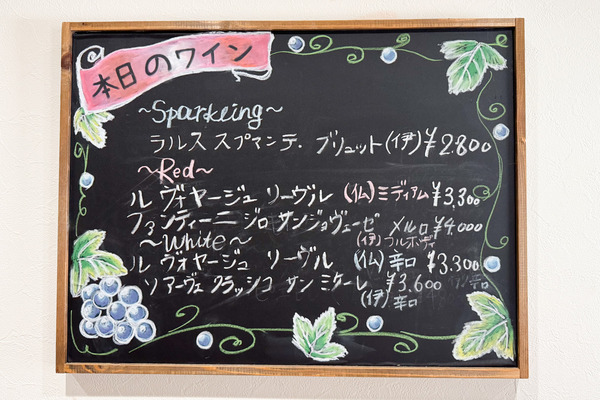 本日のワイン
~Sparkeing~
ラルス スプマンテ. ブリュット (伊) ¥2.800
~Red~
ル ヴォヤージュ リーヴル (仏) ミディアム ¥3,300
ファンティーニ ジロ サンジョヴェーゼ メルロ ¥4,000
(伊) フルボディ
~White~
ル ヴォヤージュ リーヴル (仏) 辛口 ¥3.300
ソアーヴェ クラッシコ サン ミケーレ ¥3.600
(伊) 辛口